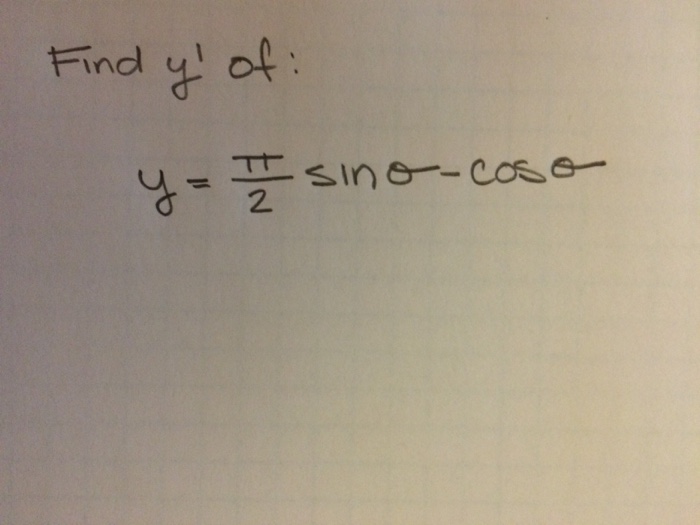 Find y' of:
y = π/2 sinθ - cosθ